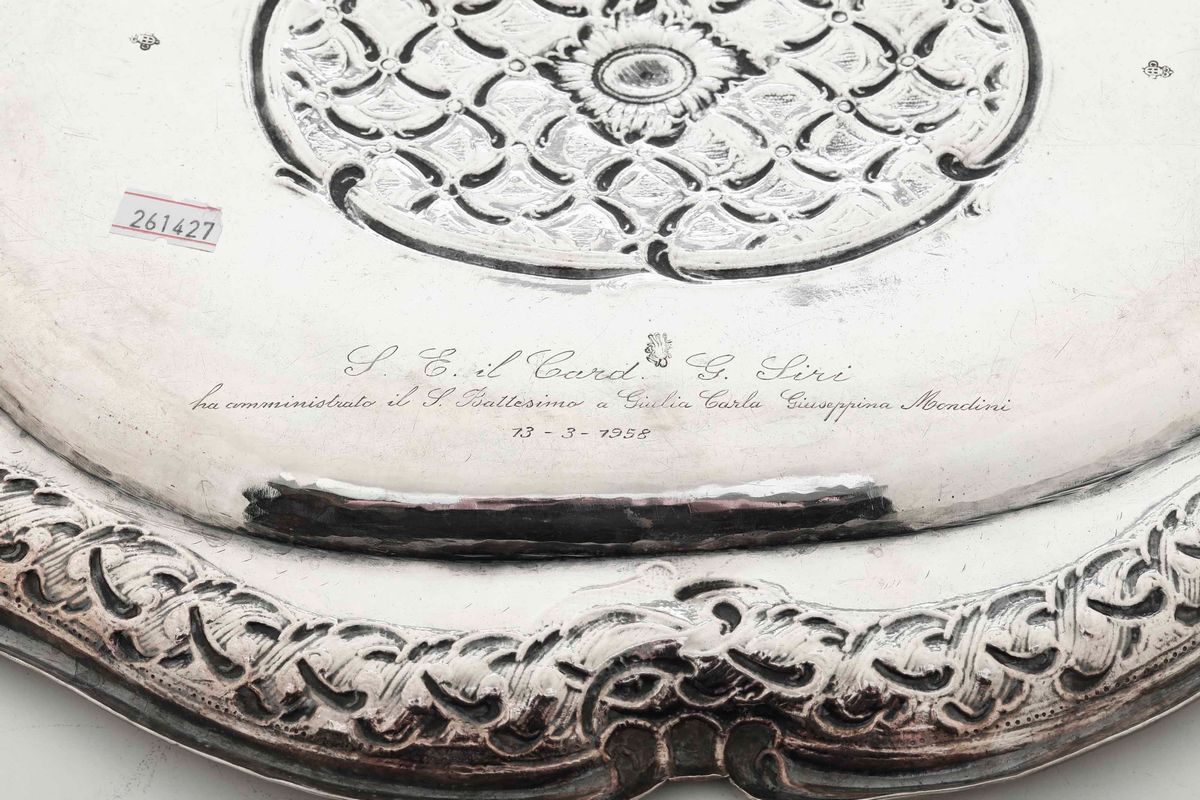 261427
S. E. il Card. G. Siri
ha amministrato il S. Battesimo a Giulia Carla Giuseppina Mondini
13 - 3 - 1958